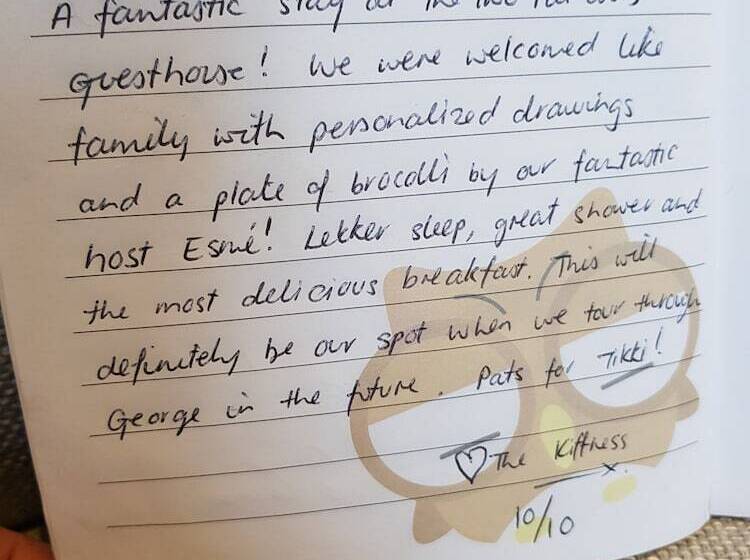 A fantastic stay at the
Guesthouse! We were welcomed like
family with personalized drawings
and a plate of brocolli by our fantastic
host Esmé! Lekker sleep, great shower and
the most delicious breakfast. This will
definetely be our spot when we tour through
George in the future. Pats for Tikki!
♡ The Kiffness x.
10/10